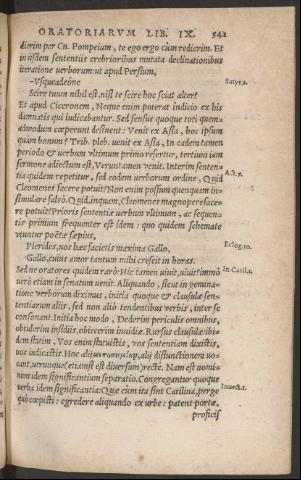 ORATORIARUM LIB. IX. 541
dierim per Cn. Pompeium, te ego ergo cùm redierim. Et
in iisdem sententiis crebrioribus mutata declinationibus
iteratione verborum: ut apud Persium,
-Vsqueadeóne
Satyr. 1.
Scire tuum nihil est, nisi te scire hoc sciat alter?
Et apud Ciceronem, Neque enim poterat indicio ex his
damnatis qui indicabantur. Sed sensus quoque toti quem-
admodum cœperunt desinent: Venit ex Asia, hoc ipsum
quàm bonum? Trib. pleb. venit ex Asia, In eadem tamen
periodo & verbum vltimum primo refertur, tertium iam
sermone adiectum est, Veruntamen venit. Interim senten-
tia quidem repetitur, sed eodem verborum ordine, Quid
Act. 7.
Cleomenes facere potuit? Non enim possum quenquam in-
simulare falsò. Quid, inquam, Cleomenes magnopere face-
re potuit? Prioris sententiæ verbum vltimum, ac sequen-
tis primum frequenter est idem: quo quidem schemate
vtuntur poëtæ sæpius,
Pierides, vos hæc facietis maxima Gallo,
Eclog. 10.
Gallo, cuius amor tantum mihi crescit in horas.
Sed ne oratores quidem rarò: Hic tamen viuit, viuit? immò
In Catil. 1.
verò etiam in senatum venit. Aliquando, sicut in gemina-
tione verborum diximus, initia quoque & clausulæ sen-
tentiarum aliis, sed non aliò tendentibus verbis, inter se
consonant. Initia hoc modo, Dederim periculis omnibus,
obtulerim insidiis, obiecerim inuidiæ. Rursus clausulæ ibi-
dem statim, Vos enim statuistis, vos sententiam dixistis,
vos iudicastis. Hoc alij alij disiunctionem vo-
cant, vtrunque (etiamsi est diuersum) rectè. Nam est nomi-
num idem significantium separatio. Congregantur quoque
verba idem significantia: Quæ cùm ita sint Catilina, perge
Inuect. 1.
quò cœpisti: egredere aliquando ex vrbe: patent portæ,
proficis